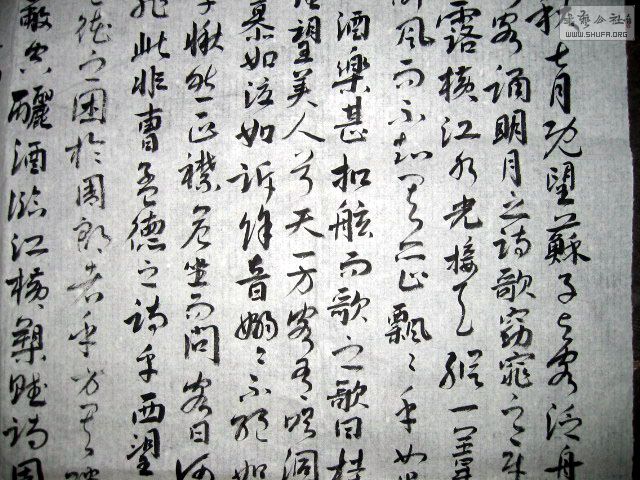 七月既望蘇子与客泛舟
客誦明月之詩歌窈窕之章
露横江水光接天縱一葦
風而不知其所止飄〻乎如
酒樂甚扣舷而歌之歌曰桂
望美人兮天一方客有吹洞
慕如泣如訴餘音嫋〻不絕如
愀然正襟危坐而問客曰何
飛此非曹孟德之詩乎西望
德之困於周郎者乎方其破
蔽空釃酒臨江横槊賦詩固
WWW.SHUFA.ORG